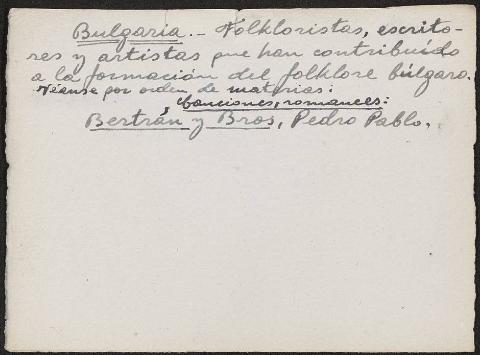 Bulgaria.- Folkloristas, escrito-
res y artistas que han contribuido
a la formación del folklore búlgaro.
Véanse por orden de materias:
Canciones, romances:
Bertrán y Bros, Pedro Pablo.